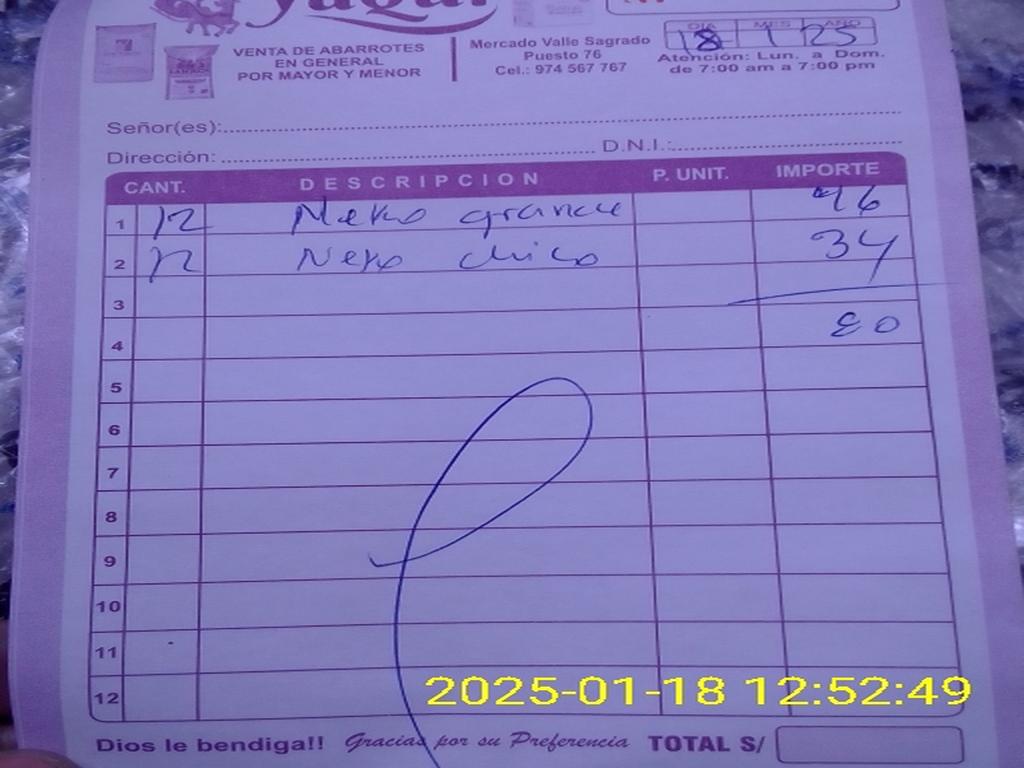 VENTA DE ABARROTES
EN GENERAL
POR MAYOR Y MENOR
Mercado Valle Sagrado
Puesto 76
Cel.: 974 567 767
DIA MES AÑO
18 1 25
Atención: Lun. a Dom.
de 7:00 am a 7:00 pm
Señor(es):
Dirección: D.N.I.:
CANT. DESCRIPCION P. UNIT. IMPORTE
1 12 grande 46
2 12 chico 34
3
4 80
5
6
7
8
9
10
11
12
2025-01-18 12:52:49
Dios le bendiga!! Gracias por su Preferencia TOTAL S/